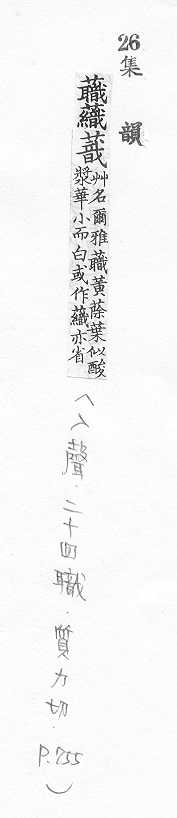 26集 韻
蘵 艸名爾雅蘵黃蒢葉似酸
漿華小而白或作 亦省
(入聲．二十四職．質力切．P.755)